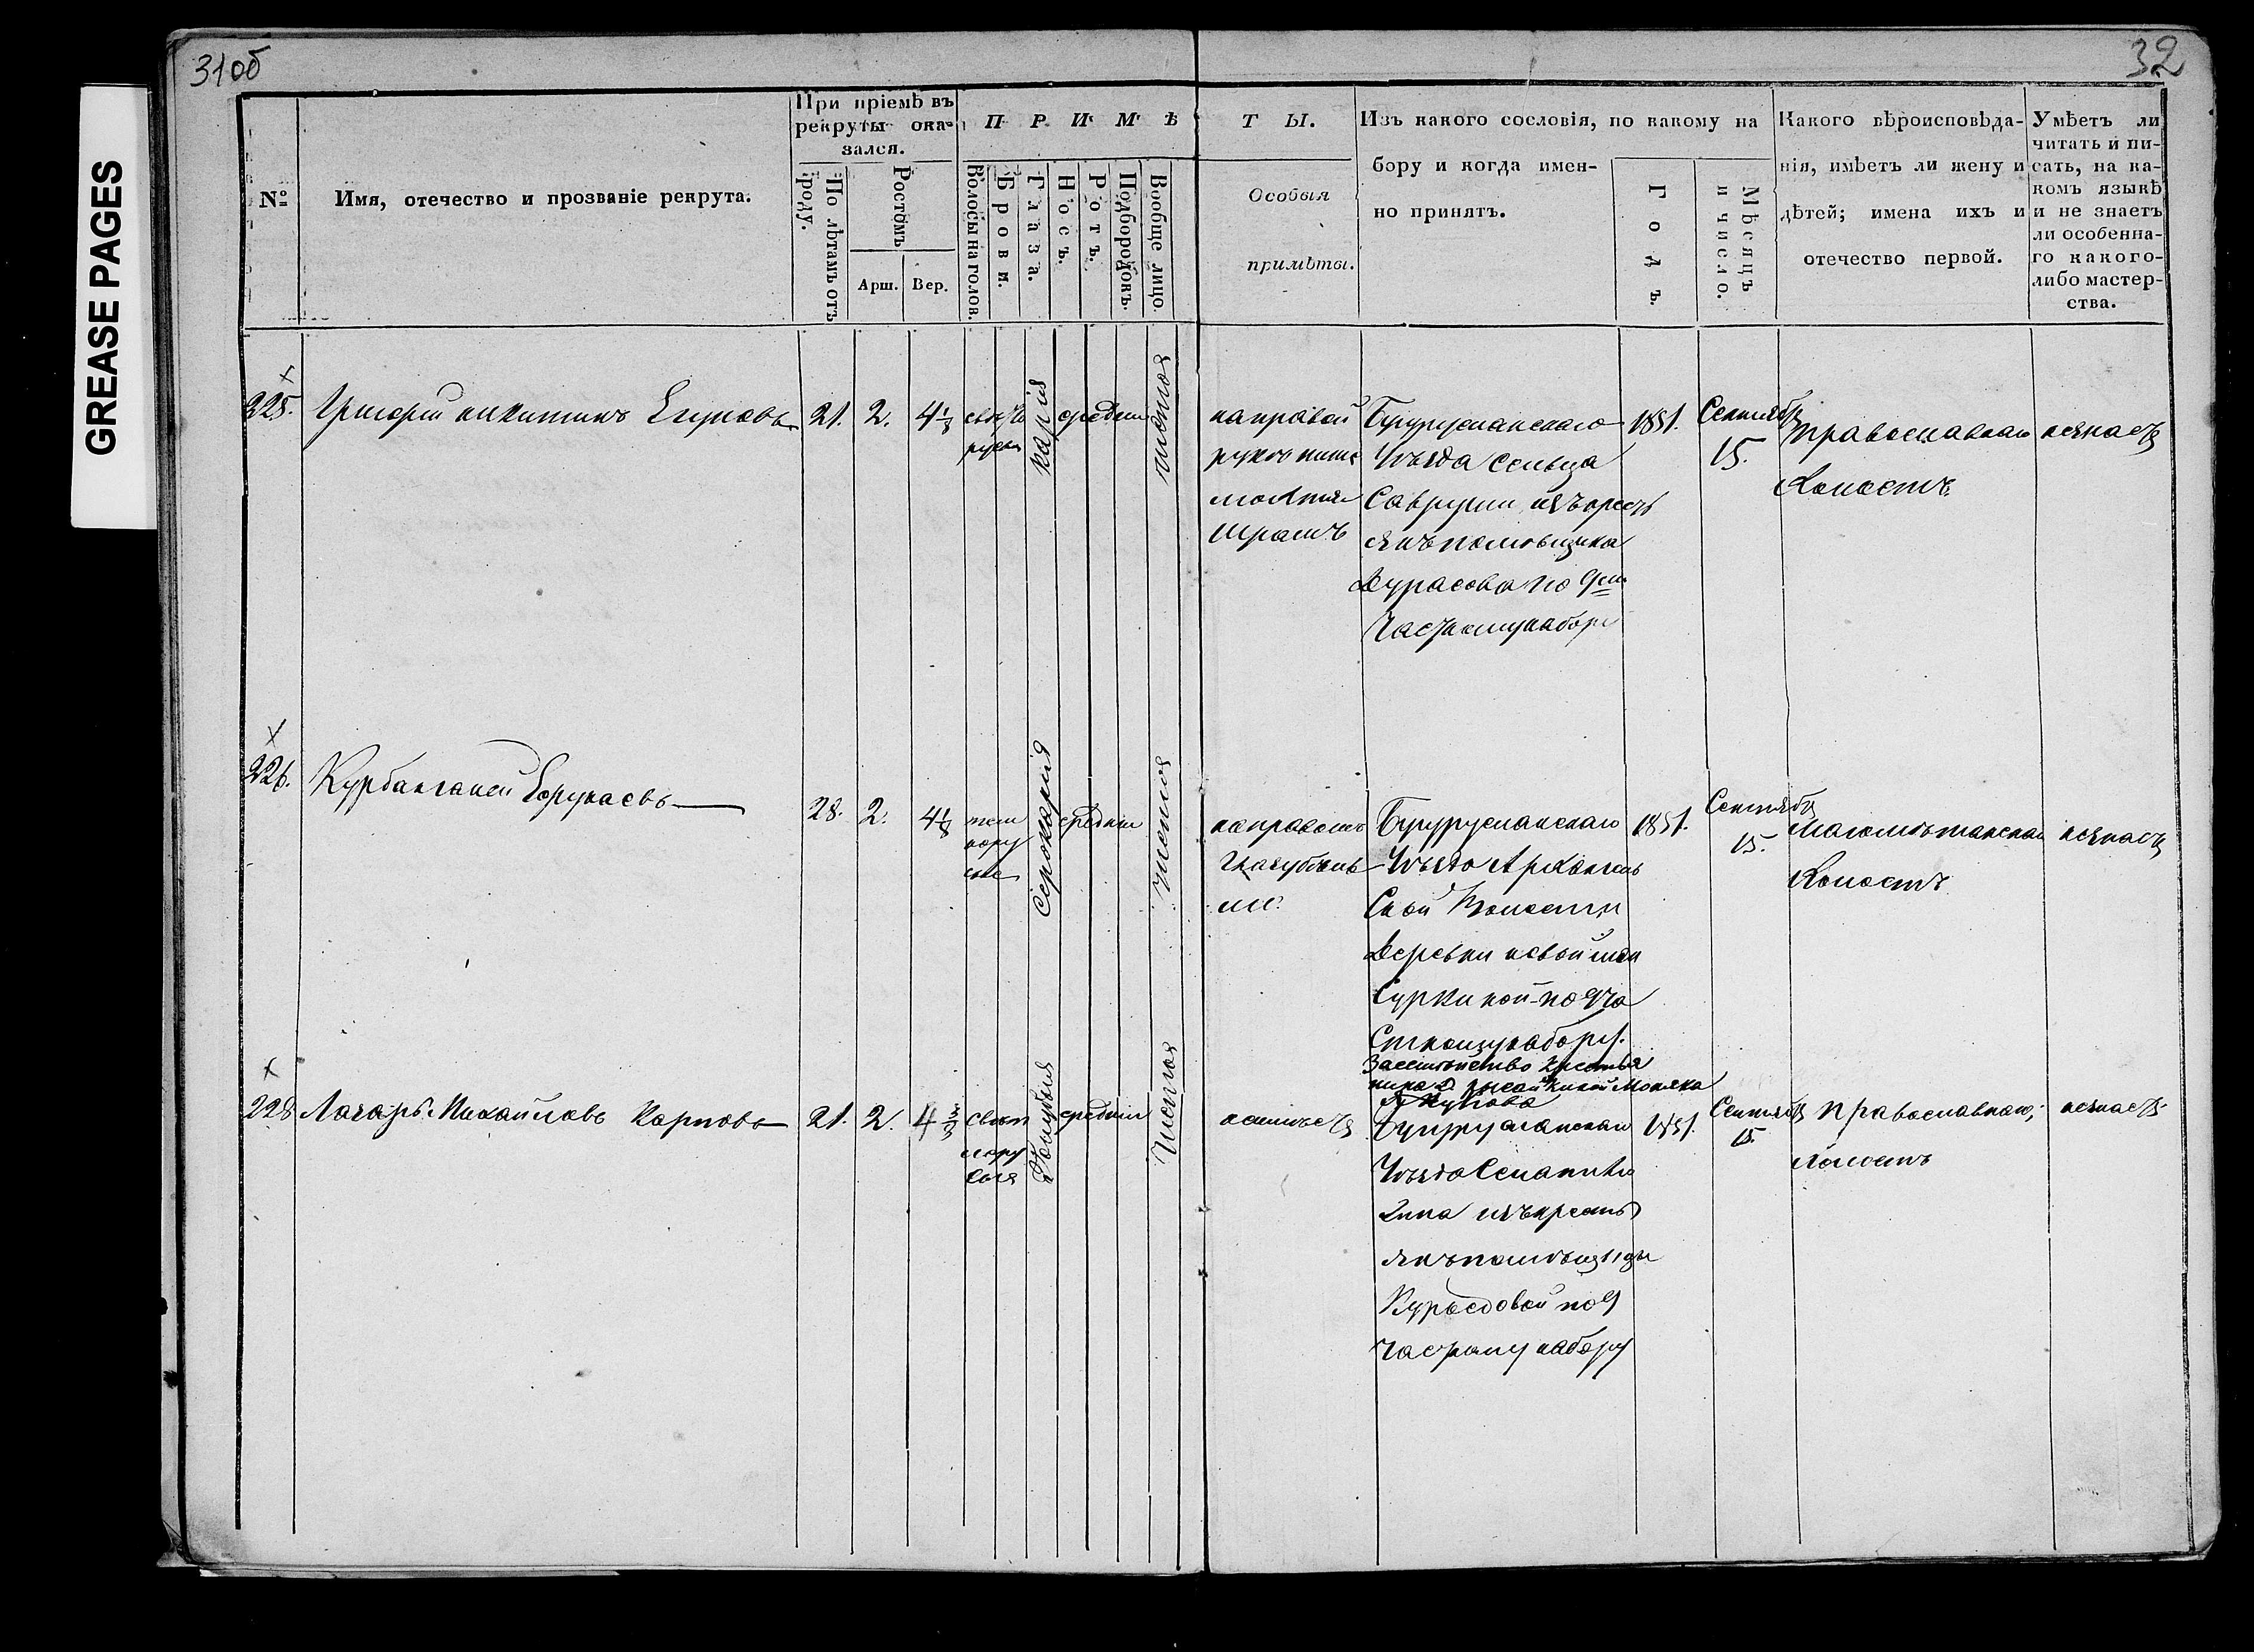 GREASE PAGES
31об
32
№
Имя, отечество и прозваніе рекрута.
При пріемѣ въ
рекруты ока-
зался.
По лѣтамъ отъ
роду.
Ростомъ
Арш.
Вер.
П Р И М Ѣ
Волосы на голов.
Брови.
Глаза.
Носъ.
Ротъ.
Подбородокъ.
Вообще лицо.
Т Ы.
Особыя
примѣты.
Изъ какого сословія, по какому на
бору и когда имен-
но принятъ.
Годъ.
Мѣсяцъ
и число.
Какого вѣроисповѣда-
нія, имѣетъ ли жену и
дѣтей; имена ихъ и
отечество первой.
Умѣетъ ли
читать и пи-
сать, на ка-
комъ языкѣ
и не знаетъ
ли особенна-
го какого-
либо мастер-
ства.
225.
Григорій Никитинъ Егуновъ
21.
2.
4 1/8
свѣтло
русыя
карія
средніи
чистоя
на правой
руке ниже
локтя
шрамъ
Бугурусланскаго
Уѣзда Сельца
Саврухи изъ крест
янъ помѣщика
Дурасова по 9му
Частному набору
1851.
Сентября
15.
Православнаго
Холостъ
незнаетъ
226.
Курбангалей
28.
2.
4 1/8
тем
нору
сые
Серокарія
средніи
чистоя
на правомъ
Бугурусланскаго
Уѣзда Архангель
Ской Волости
Деревни новой
по 9 ча
Стному набору.
1851.
Сентября
15.
Магометанскаго
Холостъ
незнаетъ
228
Лазарь Михайловъ Карповъ
21.
2.
4 3/8
свѣт
лору
сыя
Голубыя
средніи
Чистоя
неимѣетъ
Бугурусланскаго
Уѣзда
изъ крестъ
янъ помѣщицы
Куроедовой по 9
Частному набору
1851.
Сентября
15.
Православнаго,
холостъ
незнаетъ